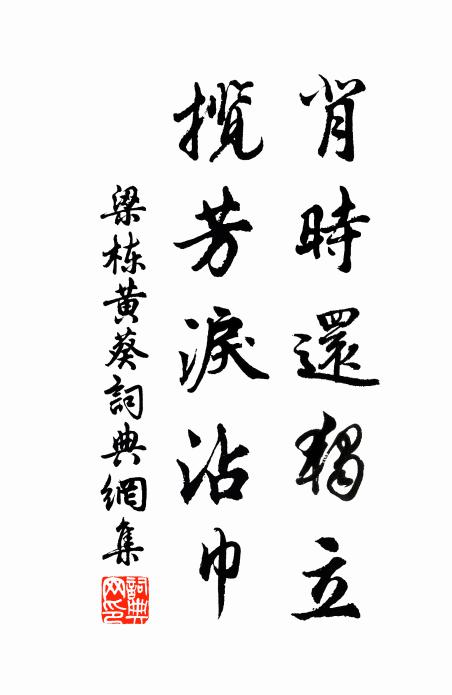 肖時還獨立
攬芳淚沾巾
梁栋黄葵詞典網集
詞典網印